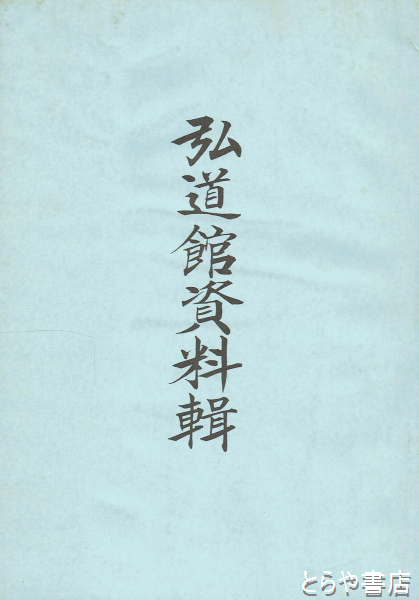 弘道館資料輯
とらや書店